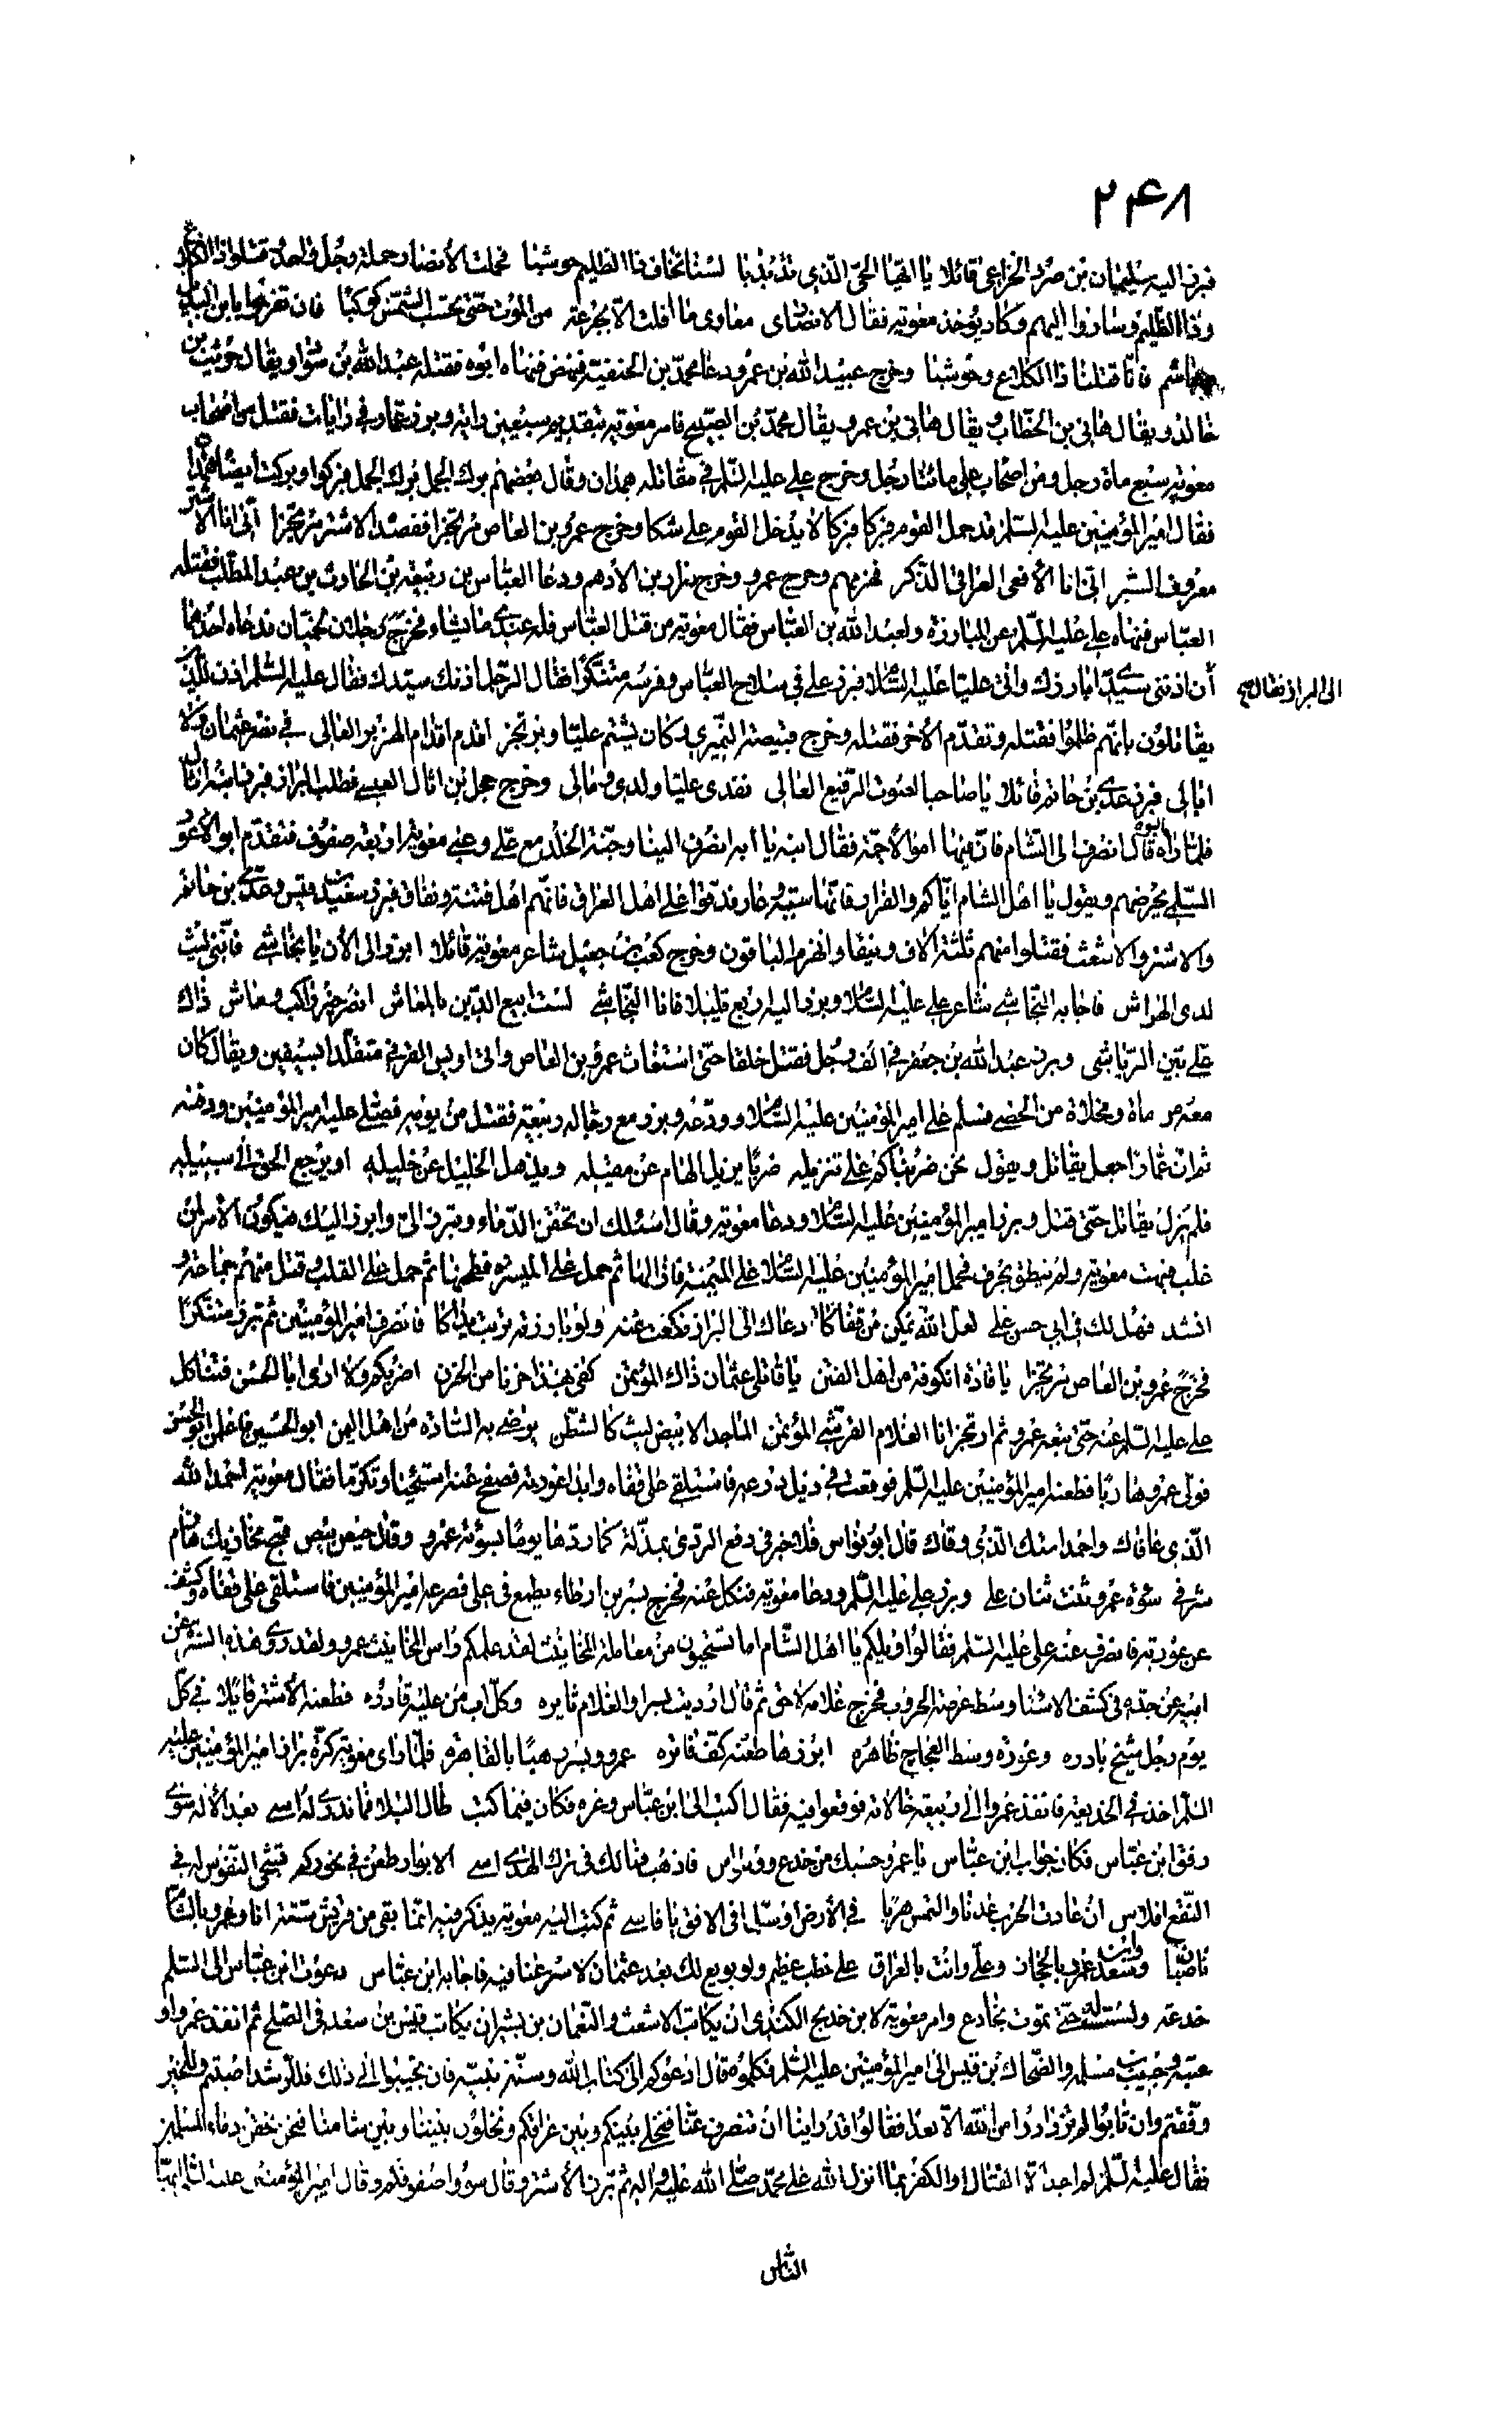 ٢۴٨
فبرز اليه سليمان بن صرد الخزاعي قائلا يا ايها الحيّ الّذي تذبذبا لسنا نخاف ذا الظليم حوشبا فحملت الأنصار حملة رجل واحد فقتلوا ذا الكلاع
وذا الظليم وساروا اليهم وكاد يؤخذ معوية فقال الانصاري معاوى ما افلت الّا بجرعة من الموت حتّى تحسب الشمس كوكبا فان تفرحوا بابن البديل
هاشم فانّا قتلنا ذا الكلاع وحوشبا وخرج عبيد الله بن عمر ودعا محمّد بن الحنفيّة فنهض فنهاه ابوه فقتله عبد الله بن سوار ويقال حريث بن
خالد ويقال هاني بن الخطاب ويقال هاني بن عمرو ويقال محمّد بن الصبيح فامر معوية بتقديم سبعين راية وبرز عمار في رايات فقتل من اصحاب
معوية سبع مأة رجل ومن اصحاب علي مائتا رجل وخرج علي عليه السّلم في مقاتله همدان وقال بعضهم بوك الجمل بوك الجمل فبركوا وبركت ايضا همدان
فقال امير المؤمنين عليه السّلم قد حمل القوم فبركا فبركا لا يدخل القوم على شكا وخرج عمرو بن العاص مرتجزا فقصد الاشتر مرتجزا انّي انا الاشتر
معروف الشتر انّي انا الأفعى العراقي الذّكر فهزمهم وجرح عمرو وخرج بن الأدهم ودعا العبّاس بن ربيعة بن الحارث بن عبد المطّلب فقتله
العبّاس فنهاه علي عليه السّلم عن المبارزة ولعبد الله بن العبّاس فقال معوية من قتل العبّاس فله عندي ما يشاء فخرج رجلان لخميان فدعاه احدهما
الى البراز فقال له
أن اذنني سيّدي ابارزك واتى عليّا عليه السّلام فبرز علي في سلاح العبّاس وفرسه متنكّرا فقال الرّجل اذنك سيّدك فقال عليه السّلم اذن للّذين
يقاتلون بانّهم ظلموا فقتله وتقدّم الأخر فقتله وخرج قبيصة النّميري وكان يشتم عليّا وبرتجز اقدم اقدام الهزبر العالي في نصر عثمان ولا
ابالي فبرز عدي بن حاتم قائلا يا صاحب الصوت الرفيع العالي نفدى عليّا ولدي ومالي وخرج حجل بن اثال العبسي فطلب البراز فبرز ابنه اثال
فلمّا راه ابوه قال انصرف الى الشام فانّ فيها اموالا جمّة فقال ابنه يا ابه انصرف الينا وجنّة الخلد مع علي وعبى معوية اربعة صفوف فتقدّم ابو الأعور
السلمي يحرّضهم ويقول يا اهل الشام ايّاكم والفرار فانّها سبّة وعار فدقّوا على اهل العراق فانّهم اهل فتنة ونفاق فبرز سعيد بن قيس وعدي بن حاتم
والاشتر والاشعث فقتلوا منهم ثلثة الاف ونيفا وانهزم الباقون وخرج كعب بن جعيل شاعر معوية قائلا ابرز الى الأن يا نجاشي فانّني ليث
لدى الهراش فاجابه النّجاشي شاعر علي عليه السّلام وبرز اليه اربع قليلا فانا النّجاشي لست ابيع الدّين بالمعاش انصر خير راكب وماش ذاك
علي بيّن الرياشي وبرز عبد الله بن جعفر في الف رجل فقتل خلقا حتّى استغاث عمرو بن العاص واتى اويس القرني متقلّدا بسيفين ويقال كان
معه مرماة ومخلاة من الحصى فسلّم على امير المؤمنين عليه السّلام وودّعه وبرز مع رجّالة ربيعة فقتل من يومه فصلّى عليه امير المؤمنين ودفنه
ثم انّ عمّارا جعل يقاتل ويقول نحن ضربناكم على تنزيله ضربا يزيل الهام عن مقيله ويذهل الخليل عن خليله او يرجع الحق الى سبيله
فلم يزل يقاتل حتّى قتل وبرز امير المؤمنين عليه السّلام ودعا معوية وقال اسئلك ان تحقن الدّماء وتبرز الىّ وابرز اليك فيكون الأمر لمن
غلب فبهت معوية ولم ينطق بحرف فحمل امير المؤمنين عليه السّلام على الميمنة فازالها ثم حمل على الميسرة فطحنها ثم حمل على القلب وقتل منهم جماعة و
انشد فهل لك في ابي حسن علي لعلّ الله يمكن من قفاكا دعاك الى البراز فكعت عنه ولو بارزته تربت يداكا فانصرف امير المؤمنين ثم برز متنكّرا
فخرج عمرو بن العاص مرتجزا يا قادة الكوفة من اهل الفتن يا قاتلي عثمان ذاك المؤتمن كفى بهذا حزنا من الحزن اضربكم ولا ارى ابا الحسن فتناكل
علي عليه السّلم عنه حتّى تبعه عمرو ثم ارتجز انا الغلام القرشي المؤتمن الماجد الابيض ليث كالشطن يرضى به السّادة من اهل اليمن ابو الحسين فاعلمن ابو الحسن
فولّى عمرو هاربا فطعنه امير المؤمنين عليه السّلم فوقعت في ذيل درعه فاستلقى على قفاه وابدا عورته فصفح عنه استحياء وتكرّما فقال معوية احمد الله
الّذي عافاك واحمد استك الّذي وقاك قال ابو نواس فلا خير في دفع الردى بمذلّة كما ردّها يوما بسوءته عمرو وقال حيص بيص قبح مخازيك هازم
شرفي سوءة عمرو ثنت سنان علي وبرز علي عليه السّلم ودعا معوية فنكل عنه فخرج بسر بن ارطاة يطمع في علي فصرعه امير المؤمنين فاستلقى على قفاه وكشف
عن عورته فانصرف عنه علي عليه السّلم فقالوا ويلكم يا اهل الشام اما تستحيون من معاملة المخانيث لقد علمكم راس المخانيث عمرو ولقد روى هذه السيرة عن
ابيه عن جدّه في كشف الاستاه وسط عرصة الحروب فخرج غلامه لاحق ثم قال ارديت بسرا والغلام ثايره وكلّ اب من عليه قادره فطعنه الأشتر قائلا في كلّ
يوم رجل شيخ بادره وعورة وسط العجاج ظاهره ابرزها طعنة كفّ فاتره عمرو وبسر رهبا بالفاهرة فلمّا راى معوية كثرة براز امير المؤمنين عليه
السّلم اخذ في الخديعة فانفذ عمرو الى ربيعة خالاته فوقعوا فيه فقال اكتب الى ابن عبّاس وغرّه فكان فيما كتب طال البلاء فما ندري له اسى بعد الأله سوى
رفق ابن عبّاس فكان جواب ابن عبّاس يا عمرو حسبك من خدع ووسواس فاذهب فمالك في ترك الهدى اسى الا بوادر طعن في نحوركم تشجي النفوس له في
النّقع افلاس ان عادت الحرب عدنا والتمس هربا في الأرض او سلّما في الافق يا قاسي ثم كتب اليه معوية يذكر فيه انّما بقي من قريش ستّة انا وعمرو بالشام
ناصبان وسعد وابن عمر بالحجاز وعليّ وانت بالعراق على خطب عظيم ولو بويع لك بعد عثمان لاسرعنا فيه فاجابه ابن عبّاس دعوت ابن عبّاس الى السلم
خدعة وليس له حتّى تموت بخادع وامر معوية لابن خديج الكندي ان يكاتب الاشعث والنّعمان بن بشير ان يكاتب قيس بن سعد في الصلح ثم انفذ عمرا و
عتبة وحبيب بن مسلمة والضّحاك بن قيس الى امير المؤمنين عليه السّلم فكلّموه فقال ادعوكم الى كتاب الله وسنّة نبيّه فان تجيبوا الى ذلك فللرّشد اصبتم وللخير
وفّقتم وان تابوا لم تزدادوا من الله الّا بعدا فقالوا قد راينا ان تنصرف عنّا فنخلي بينكم وبين عراقكم وتخلون بيننا وبين شامنا فنحن نحقن دماء المسلمين
فقال عليه السّلم لم اجد الّا القتال او الكفر بما انزل الله على محمّد صلّى الله عليه واله ثم برز الأشتر وقال سوّوا صفوفكم وقال امير المؤمنين عليه السّلم ايّها
النّاس